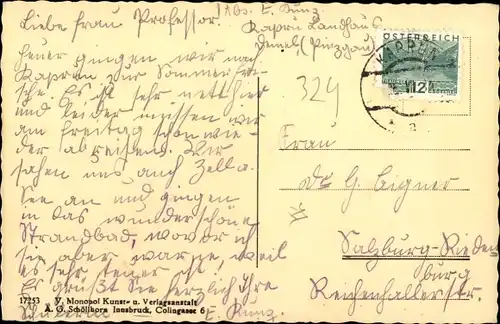 Liebe Frau Professor.
Abs. E. Kunz.
Kaprun Landhaus
(Pinzgau)
Heuer gingen wir nach
Kaprun zur Sommerfri-
sche. Es ist sehr nett hier
und leider müssen wir
am Freitag schon wie-
der abreisen. Wir
sahen uns auch Zell a.
See an und gingen
in das wunderschöne
Strandbad, wovor ich
sie aber warne, weil
es sehr teuer ist!
Es grüßt Sie herzlich Ihre
Schülerin E. Kunz.
324
ÖSTERREICH
KAPRUN
12
Frau
G. Aigner
Salzburg-Rieden
burg
Reichenhallerstr.
17253 V. Monopol Kunst- u. Verlagsanstalt
A. G. Schöllhorn Innsbruck, Colingasse 6